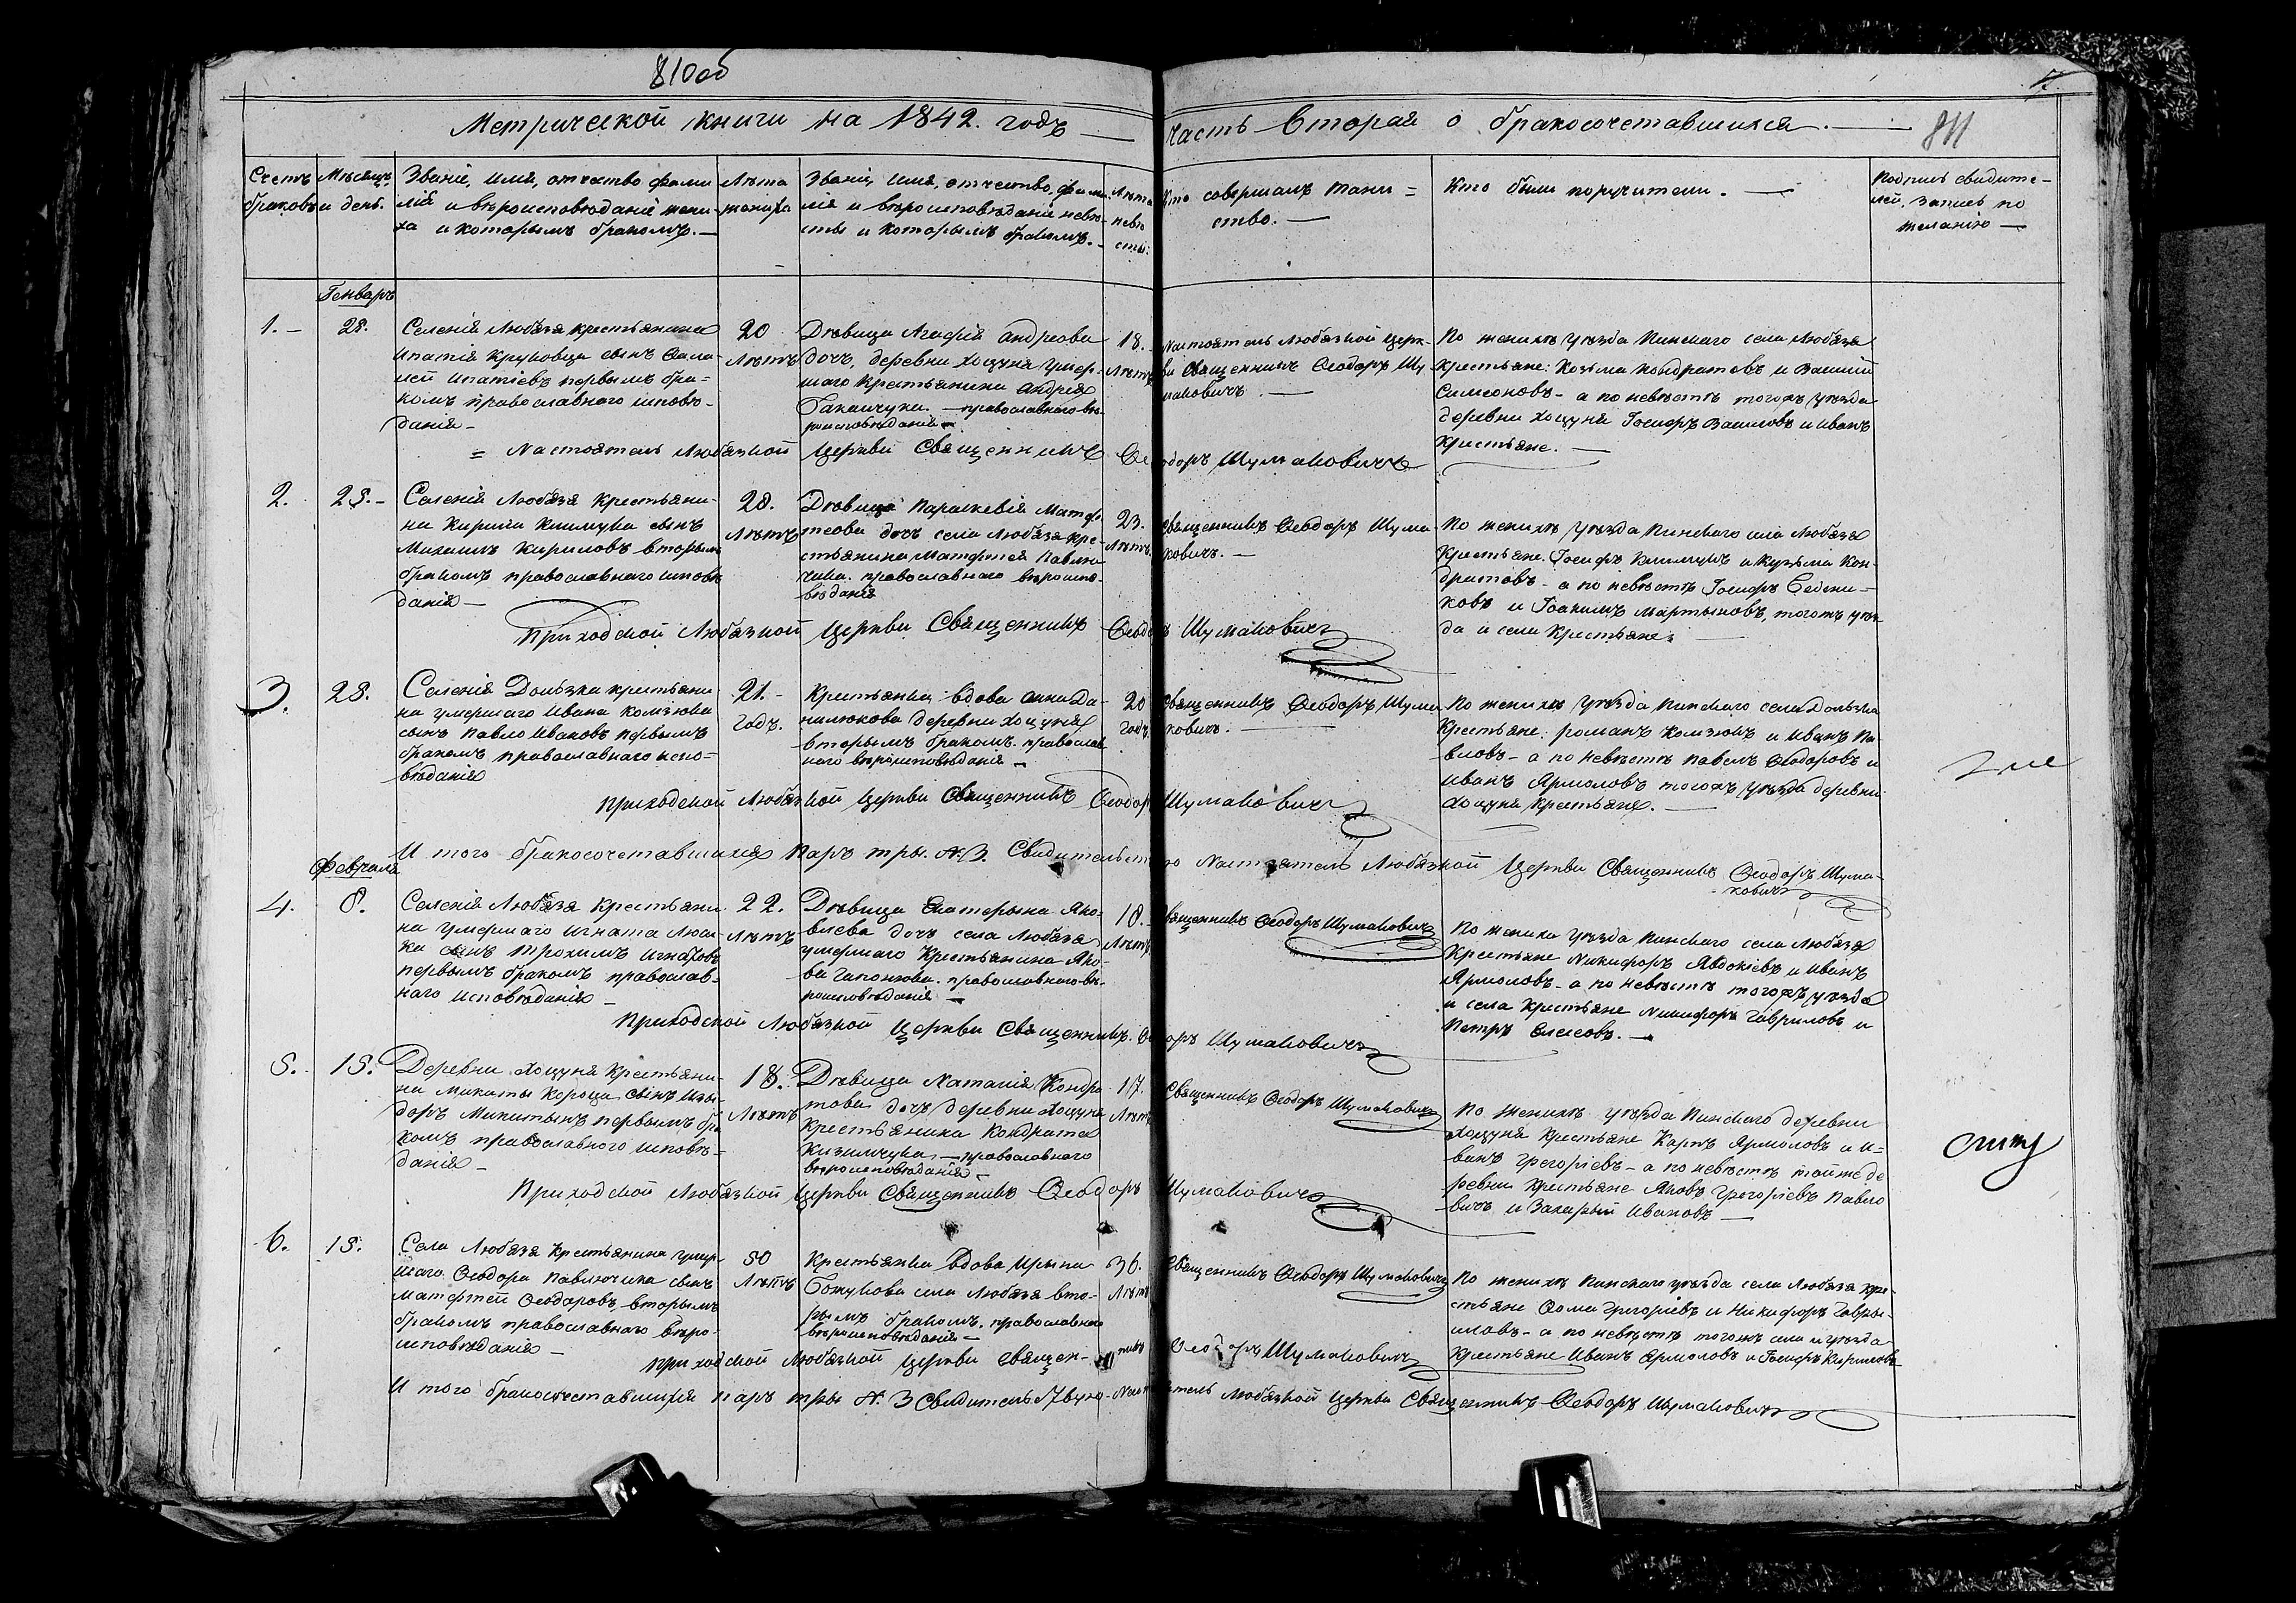 810об
Метрической книги на 1842. годъ
часть вторая о бракосочетавшихся.
811
Счетъ браковъ
Мѣсяцъ и день.
Званіе, имя, отчество фами
лія и вѣроисповѣданіе жени-
ха и которымъ бракомъ.
Лѣта
жениха
Званіе, имя, отчество, фами
лія и вѣроисповѣданіе невѣ-
сты и которымъ бракомъ.
Лѣта
невѣ
сты.
Кто совершалъ таин=
ство.
Кто были поручители.
Подпись свидите-
лей, запись по
желанію
Генварь
1.
28.
Селенія Любязя крестьянина
Ипатія Круковца сынъ
Ипатіевъ первымъ бра=
комъ православнаго исповѣ-
данія
20
Лѣтъ
Дѣвица Агафія Андреова
дочь, деревни Хоцуня умер-
шаго крестьянина Андрея
православнаго вѣ-
роисповѣданія
18.
Лѣтъ
Настоятель Любязкой церк-
ви Священникъ Ѳеодоръ Шу
маковичъ.
По женихѣ уѣзда Пинскаго села Любязя
Крестьяне: Козьма Кондратовъ и Василій
Симеоновъ - а по невѣстѣ тогожъ уѣзда
деревни Хоцуня Іосифъ Василовъ и Иванъ
Крестьяне.
= Настоятель Любязкой Церкви Священникъ Ѳеодоръ Шумаковичъ
2.
28.
Селенія Любязя крестьяни-
на Кирила Климука сынъ
Михаилъ Кириловъ вторымъ
бракомъ православнаго исповѣ
данія
20.
Лѣтъ
Дѣвица Параскевія Матф
теова дочь села Любязя кре-
стьянина Матфтея Павлю-
чика. православнаго вѣроиспо-
вѣданія
23.
Лѣтъ.
Священникъ Ѳеодоръ Шума
ковичъ.
По женихѣ уѣзда Пинскаго села Любязя
Крестьяне: Іосифъ Климукъ и Кузьма Кон-
дратовъ - а по невѣстѣ Іосифъ
ковъ и Іоакимъ Мартыновъ, тогожъ уѣз-
да и села Крестьяне.
Приходской Любязкой Церкви Священникъ Ѳеодоръ Шумаковичъ
3.
28.
Селенія Дользка крестьяни
на умершаго Ивана Комзюка
сынъ Павло Ивановъ первымъ
бракомъ православнаго испо=
вѣданія
21.
Годъ.
Крестьянка вдова Анна Да-
нилюкова деревни Хоцуня
вторымъ бракомъ. православ
наго вѣроисповѣданія
20
годъ
Священникъ Ѳеодоръ Шума
ковичъ.
По женихѣ уѣзда Пинскаго села Дользка
Крестьяне: Романъ Комзюкъ и Иванъ Па-
вловъ - а по невѣстѣ Павелъ Ѳеодоровъ и
Иванъ Ярмоловъ тогожъ уѣзда деревни
Хоцуня Крестьяне.
Приходской Любязкой Церкви Священникъ Ѳеодоръ Шумаковичъ
И того бракосочетавшихся паръ тры. N. 3. Свидительствую Настоятель Любязкой Церкви Священникъ Ѳеодоръ Шума-
ковичъ
Февраля
4.
8.
Селенія Любязя крестьяни
на умершаго Игната
сынъ Трохимъ Игнатовъ
первымъ бракомъ православ-
наго исповѣданія
22.
Лѣтъ
Дѣвица Екатерына Яко-
влева дочь села Любязя
умершаго Крестьянина Яко-
ва Гапонюка. православнаго вѣ-
роисповѣданія
18.
Лѣтъ
Священникъ Ѳеодоръ Шумаковичъ
По жениха уѣзда Пинскаго села Любязя
Крестьяне Никифоръ Явдокіевъ и Иванъ
Ярмоловъ - а по невѣстѣ тогожъ уѣзда
и села Крестьяне Никифоръ Гаврыловъ и
Петръ
Приходской Любязкой Церкви Священникъ. Ѳеодоръ Шумаковичъ
5.
15.
Деревни Хоцуня Крестьяни-
на Микиты Короца сынъ Изы-
доръ Микитынъ первымъ бра
комъ православнаго исповѣ-
данія
18.
Лѣтъ
Дѣвица Наталія Кондра
това дочь деревни Хоцуня
Крестьянина Кондрата
Кизимчука православнаго
вѣроисповѣданія
17.
Лѣтъ
Священникъ Ѳеодоръ Шумаковичъ
По женихѣ уѣзда Пинскаго деревни
Хоцуня Крестьяне Карпъ Ярмоловъ и И-
ванъ Грегоріевъ - а по невѣстѣ тойже де
ревни Крестьяне Яковъ Грегоріевъ Павло
вичъ и Захарый Ивановъ
Приходской Любязкой Церкви Священникъ Ѳеодоръ Шумаковичъ
6.
15.
Села Любязя Крестьянина умер-
шаго Ѳеодора Павлючика сынъ
Матфтей Ѳеодоровъ, вторымъ
бракомъ православнаго вѣро-
исповѣданія
50
Лѣтъ
Крестьянка Вдова Ирына
Божукова села Любязя вто-
рымъ бракомъ. православнаго
вѣроисповѣданія
36.
Лѣтъ
Священникъ Ѳеодоръ Шумаковичъ
По женихѣ Пинскаго уѣзда села Любязя кре-
стьяне Ѳома Григоріевъ и Никифоръ Гавры-
ловъ - а по невѣстѣ тогожъ села и уѣзда
Крестьяне Иванъ Ярмоловъ и Іосифъ Кириловъ
Приходской Любязкой Церкви Священникъ Ѳеодоръ Шумаковичъ
И того бракосочетавшихся паръ тры N. 3 Свидительствую Настоятель Любязкой Церкви Священникъ Ѳеодоръ Шумаковичъ